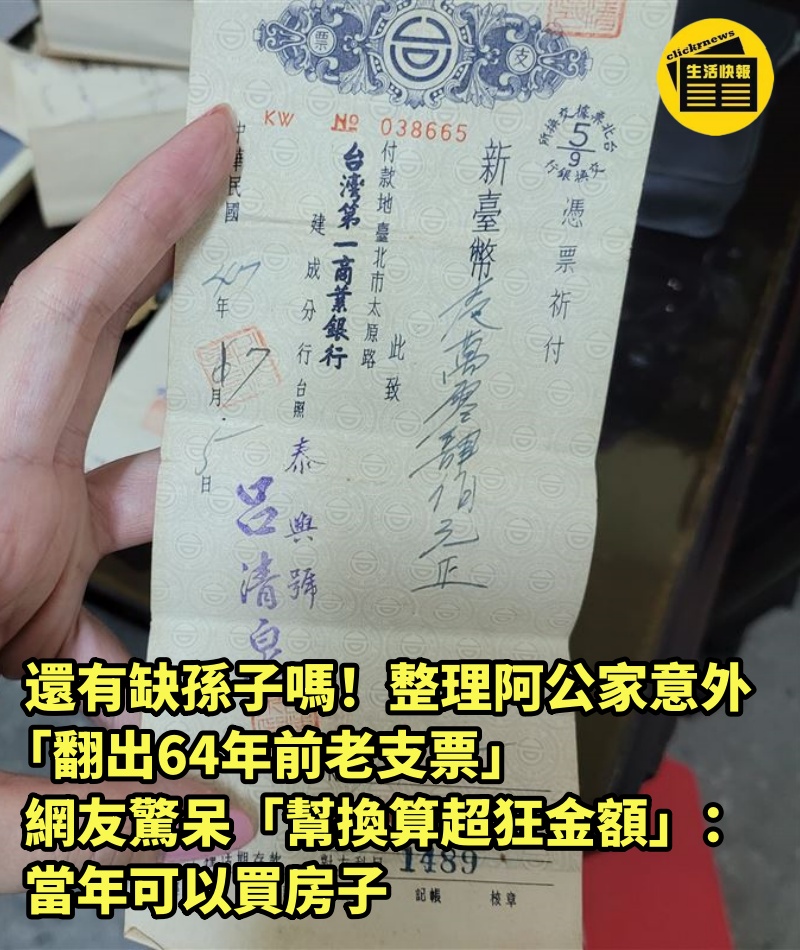 clickrnews
生活快報
票
支
KW
№ 038665
台北票據交換所
5/9
憑票祈付
新臺幣壹萬零肆佰元正
此致
付款地臺北市太原路
台灣第一商業銀行
建成分行
台照
泰興號
呂清泉
中華民國
47年
月
5日
1489
記帳
核章
還有缺孫子嗎！整理阿公家意外
「翻出64年前老支票」
網友驚呆「幫換算超狂金額」：
當年可以買房子